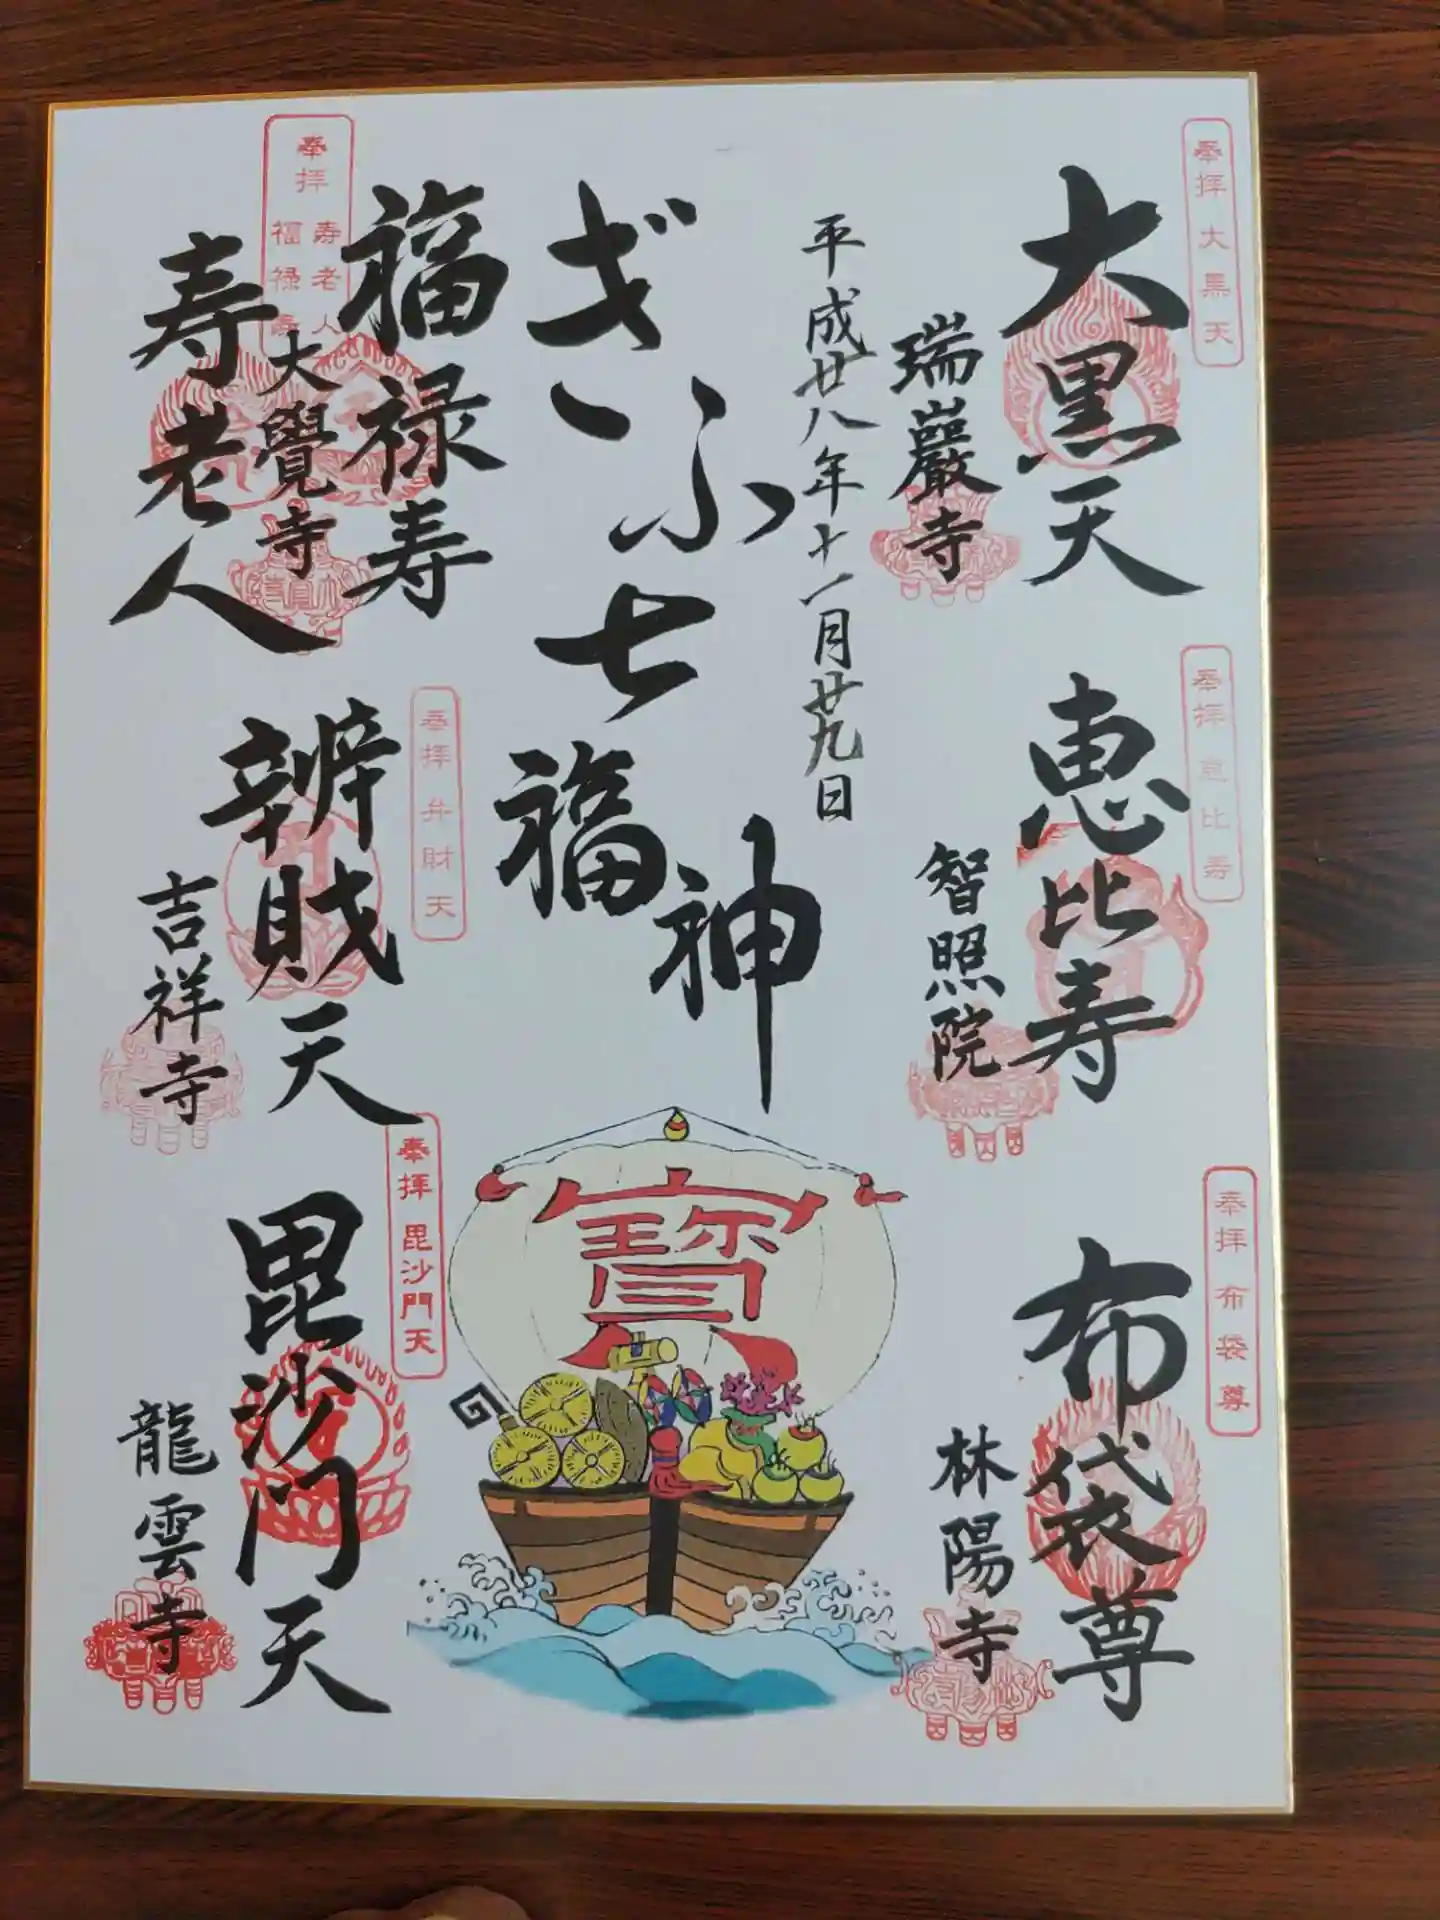 奉拝 大黒天
大黒天
瑞巖寺
奉拝 恵比寿
恵比寿
智照院
奉拝 布袋尊
布袋尊
林陽寺
平成廿八年十一月廿九日
ぎふ七福神
寶
奉拝 寿老人 福禄寿
福禄寿
大覺寺
寿老人
奉拝 弁財天
辨財天
吉祥寺
奉拝 毘沙門天
毘沙門天
龍雲寺